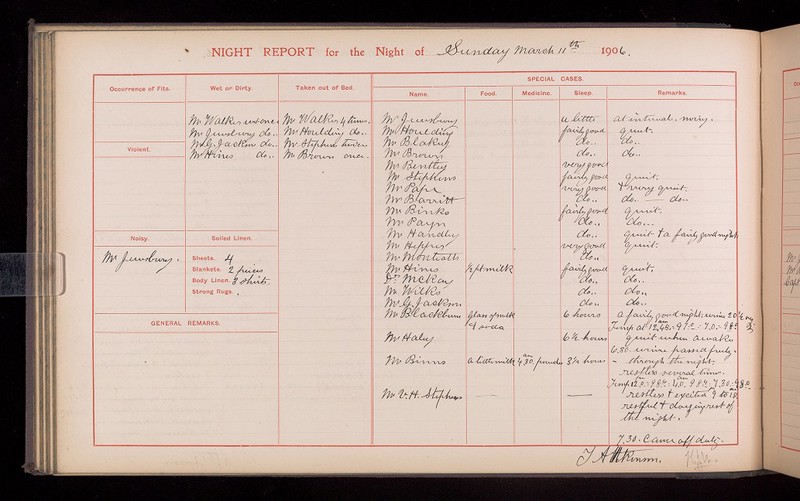 NIGHT REPORT for the Night of Sunday March 11th 1906.
SPECIAL CASES.
Occurrence of Fits. Wet or Dirty. Taken out of Bed. Name. Food. Medicine. Sleep. Remarks.
Mr Walker wet once Mr Walker 4 times. Mr Jewsbury a little at intervals. noisy.
Mr Jewsbury do.. Mr Houlding do.. Mr Houlding fairly good quiet.
Violent. Mr G. Jackson do.. Mr Stephens twice Mr Blakey do.. do..
Mr Hines do.. Mr Brown once. Mr Brown do.. do..
Mr Bentley very good
Mr Stephens fairly good quiet.
Mr Pape very good & very quiet.
Mr Barritt do.. do.. do..
Mr Binks fairly good quiet.
Mr Payn do.. do..
Noisy. Soiled Linen. Mr Handley do.. quiet & a fairly good night
Mr Jewsbury. Mr Heppes very good quiet.
Sheets. 4 Mr Monteatts do..
Blankets. 2 pieces Mr Hines ½ pt milk fairly good quiet.
Body Linen. 3 shirts. Dr McKay do.. do..
Strong Rugs. Mr Wilks do.. do..
Mr G. Jackson do.. do..
GENERAL REMARKS. Mr Blackburn glass of milk & soda 6 hours a fairly good night. urine 20½
Temp at 12.45
Mr Haley 6½ hours quiet when awake
6.30. urine passed freely.
Mr Binns a little milk 4.30 am 3½ hours through the night.
restless several times.
Mr V. H. Stephens restless & excited 9 to
restful & rest of
the night.
7.30. Came off duty.
T Atkinson.